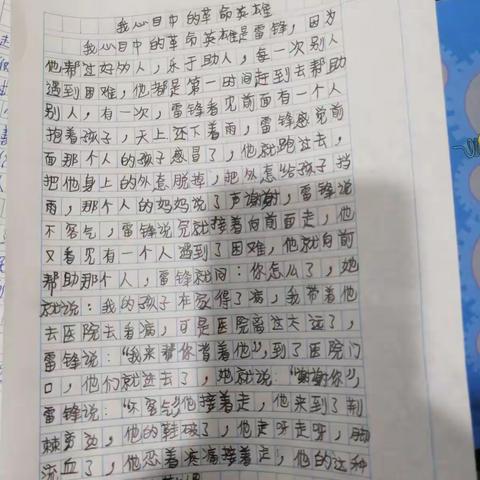 我心目中的革命英雄
我心目中的革命英雄是雷锋，因为
他帮过好多人，乐于助人，每一次别人
遇到困难，他都是第一时间赶到去帮助
别人，有一次，雷锋看见前面有一个人
抱着孩子，天上还下着雨，雷锋感觉前
面那个人的孩子感冒了，他就跑过去，
把他身上的外套脱掉，把外套给孩子挡
雨，那个人的妈妈说了声谢谢，雷锋说
不客气，雷锋说完就接着向前面走，他
又看见有一个人遇到了困难，他就向前
帮助那个人，雷锋就问：你怎么了，她
就说：我的孩子在家得了病，我带着他
去医院去看病，可是医院离这太远了，
雷锋说：“我来帮你背着他”，到了医院门
口，他们就进去了，她就说：“谢谢你”，
雷锋说：“不客气”他接着走，他来到了荆
棘旁边，他的鞋破了，他走呀走呀，脚
流血了，他忍着疼痛接着走，他的这种